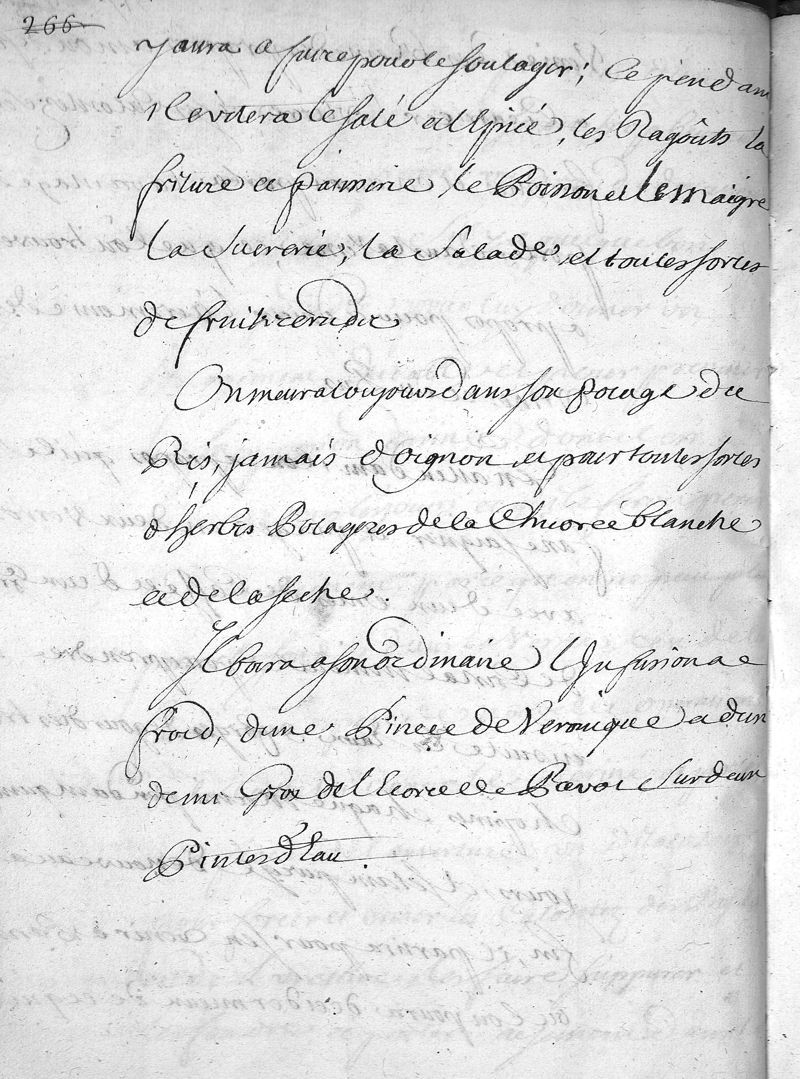 266
y aura a faire pour le soulager; Cependant
Il evitera le salé et l'Epicé, les Ragoûts la
friture et patisserie, le Poisson et le maigre
la Sucrerie, la Salade, et toutes sortes
de fruits crudes
On mettra toujours dans son potage du
Ris, jamais d'oignon et pour toutes sortes
d'herbes Potageres de la Chicorée blanche
et de la seche.
Il boira a son ordinaire l'Infusion a
froid, d'une Pincée de Veronique et d'un
demi Gros de l'Ecorce de Pavot Sur deux
Pintes d'Eau.